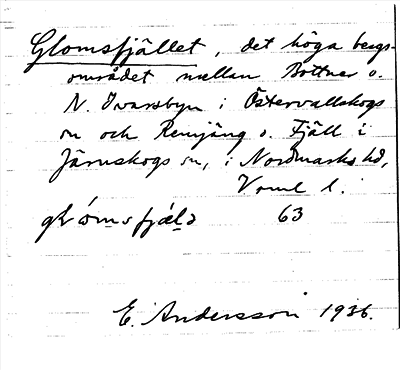 Glomsfjället, det höga bergs-
området mellan Bottner o.
N. Ivarsbyn i Östervallskogs
sn och Remjäng o. Fjäll i
Järnskogs sn, i Nordmarks hd,
Värml l.
63
E. Andersson 1936.